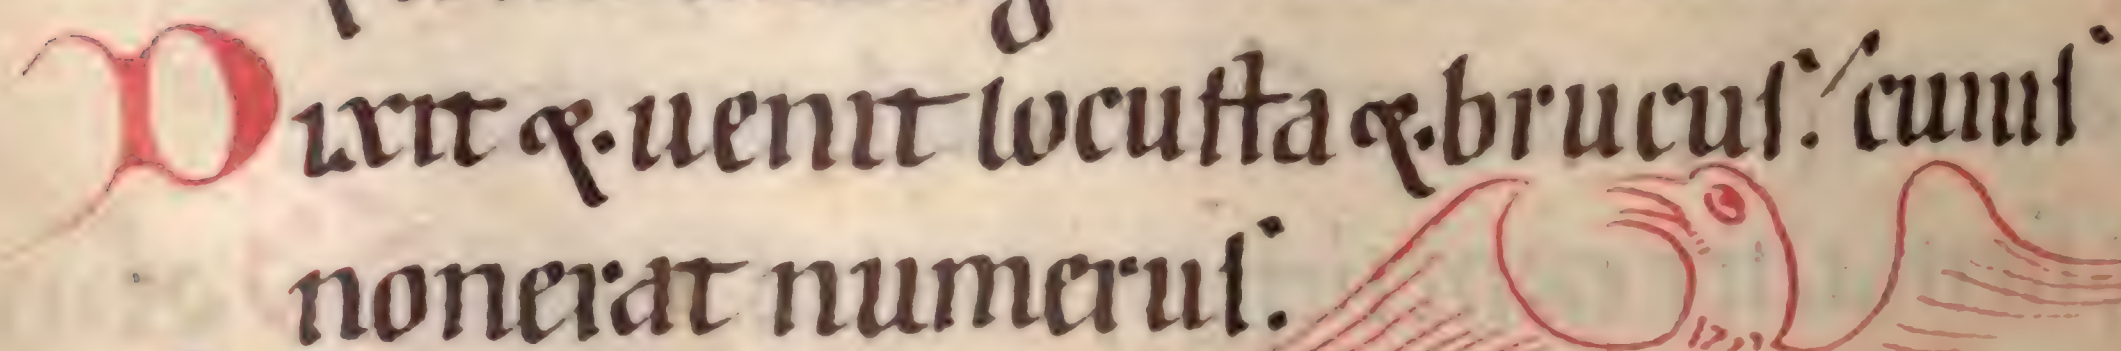 Dixit ⁊ uenit locusta ⁊ brucus; cuius
non erat numerus.